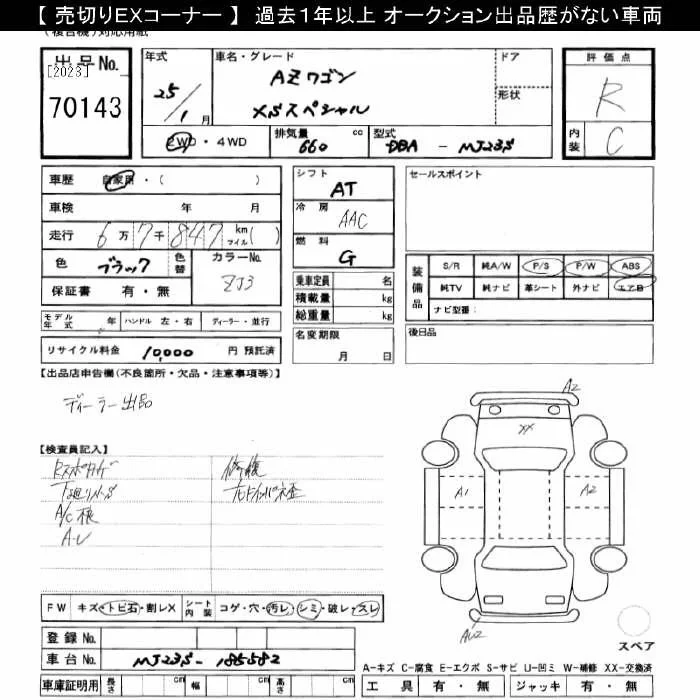 【 売切りEXコーナー 】 過去1年以上 オークション出品歴がない車両
出品No.
[2023]
70143
年式
25/1月
車名・グレード
AZワゴン
XSスペシャル
ドア
形状
評価点
R
内装
C
2WD・4WD
排気量
660 cc
型式
DBA - MJ23S
車歴 自家用・( )
車検 年 月
走行 6万7千847 km マイル( )
色 ブラック
色替
カラーNo.
ZJ3
保証書 有・無
シフト
AT
冷房
AAC
燃料
G
乗車定員 名
積載量 kg
総重量 kg
セールスポイント
装備品
S/R 純A/W P/S P/W ABS
純TV 純ナビ 革シート 外ナビ エアB
ナビ型番:
モデル年式 年 ハンドル 左・右 ディーラー・並行
リサイクル料金 10,000 円 預託済
名変期限
月 日
後日品
【出品店申告欄(不良箇所・欠品・注意事項等)】
ディーラー出品
【検査員記入】
下廻りサビ
A/C
修復
A2
XX
A1
A2
AU2
スペア
FW キズ・トビ石・割レX シート内装 コゲ・穴・汚レ・シミ・破レ・スレ
登録No.
車台No. MJ23S-185582
車庫証明用 長さ cm 幅 cm 高さ cm
A-キズ C-腐食 E-エクボ S-サビ U-凹ミ W-補修 XX-交換済
工具 有・無 ジャッキ 有・無